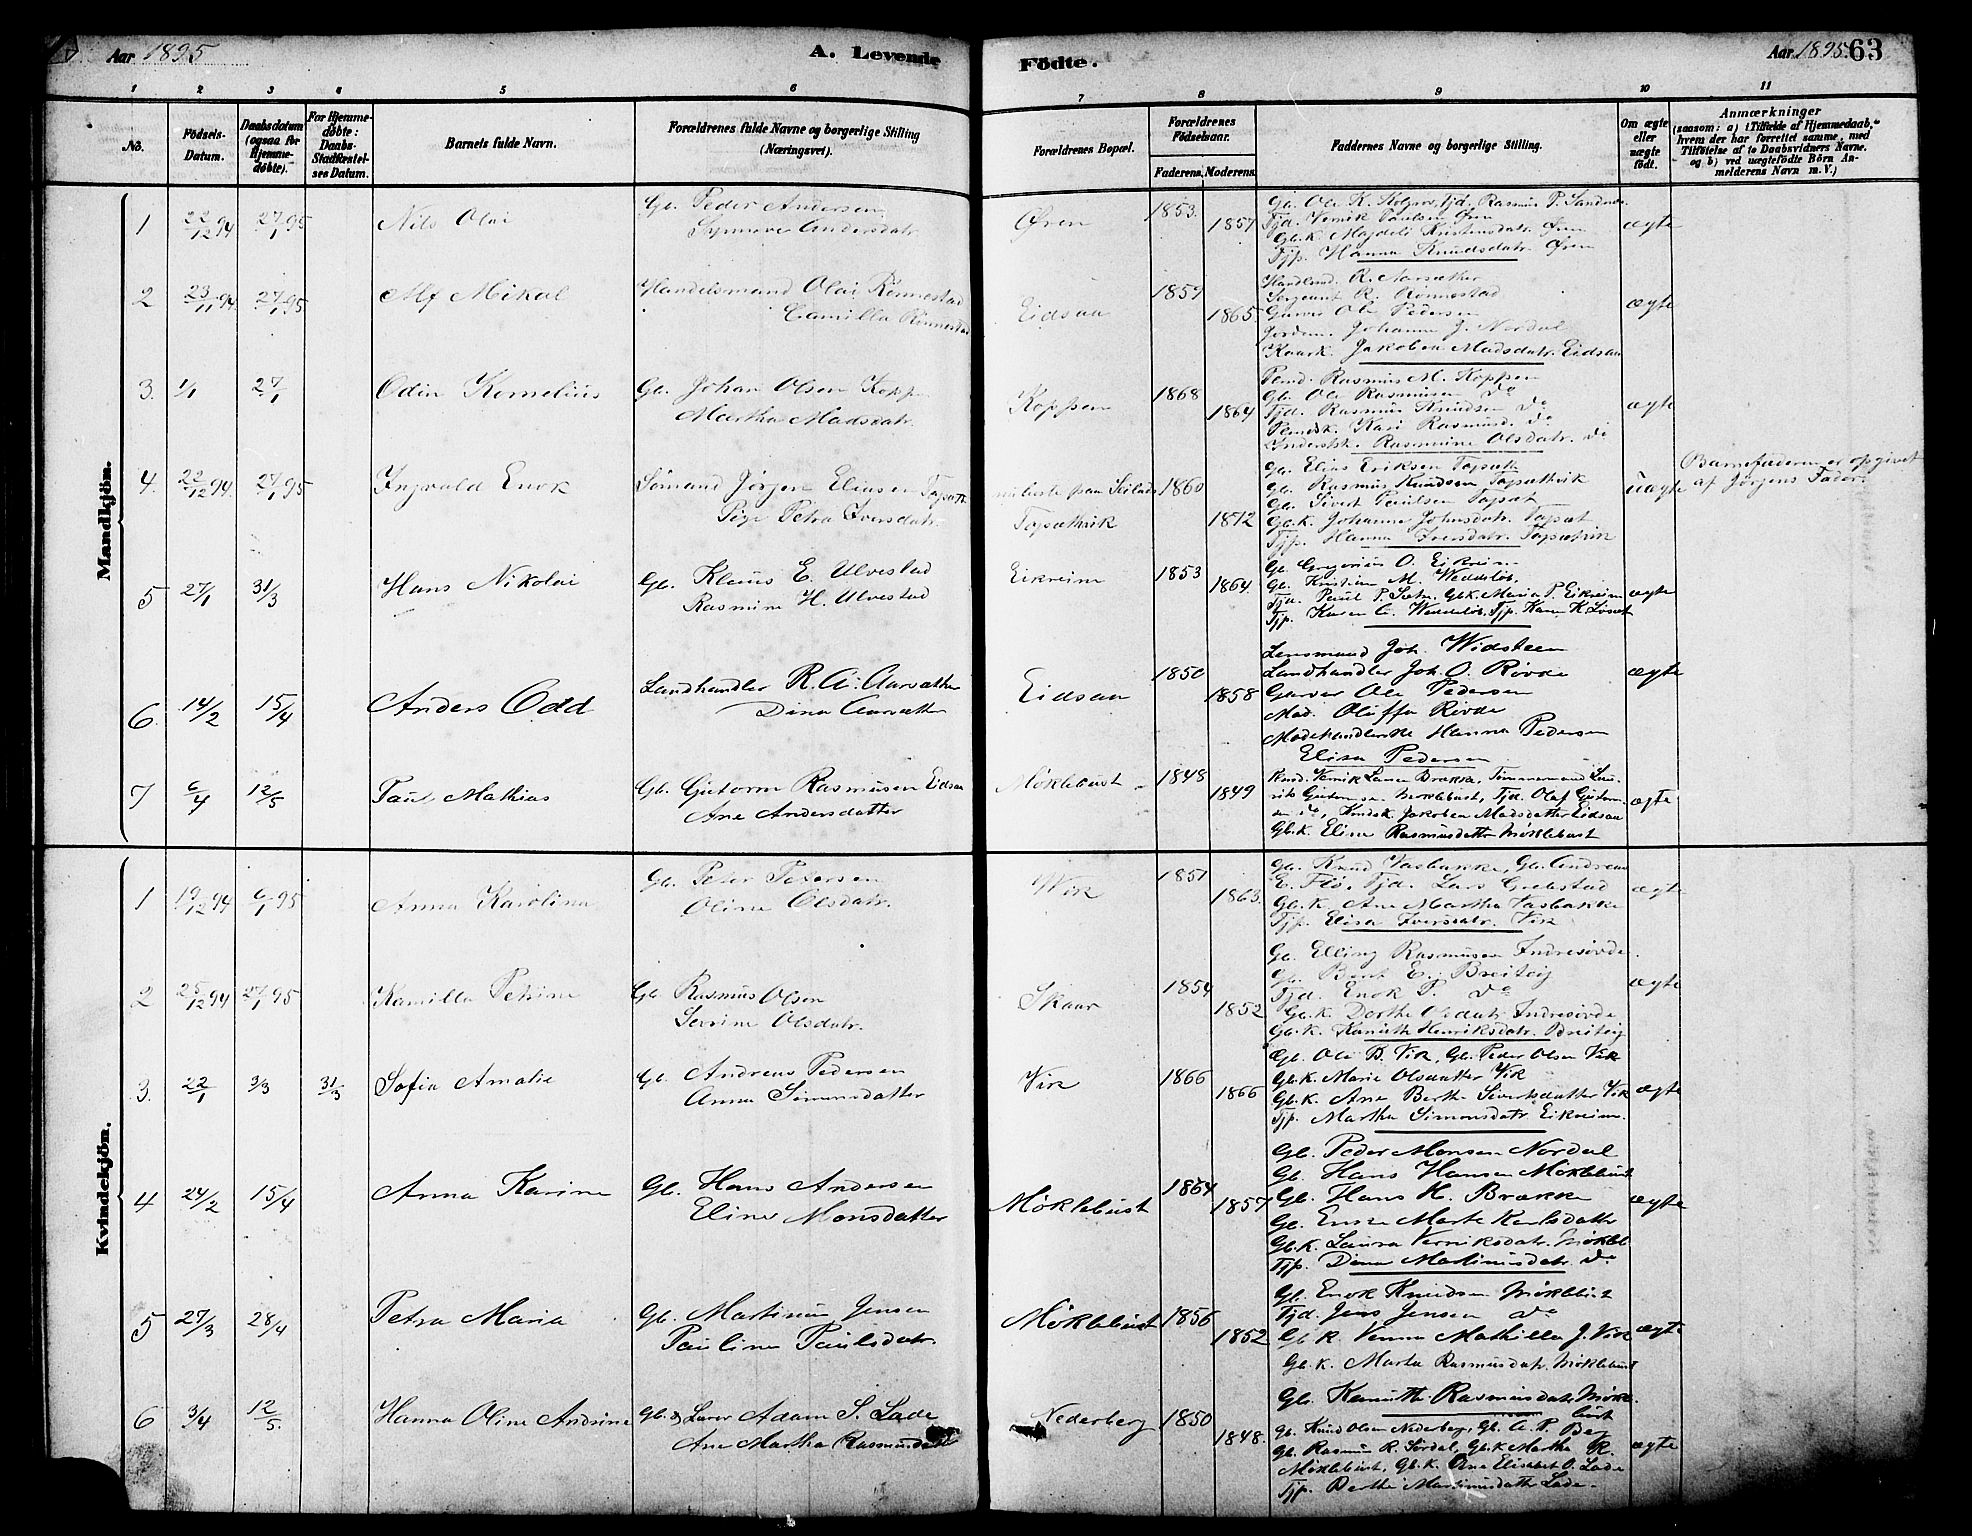 Aar 1895
A. Levende
Födte.
Aar 1895. 63
1 2 3 4 5 6 7 8 9 10 11
No.
Födsels-Datum.
Daabsdatum (ogsaa for Hjemme-döbte).
For Hjemme-döbte: Daabs-Stadfæstel-ses Datum.
Barnets fulde Navn.
Forældrenes fulde Navne og borgerlige Stilling (Næringsvei).
Forældrenes Bopæl.
Forældrenes Födselsaar.
Faderens. Moderens.
Faddernes Navne og borgerlige Stilling.
Om ægte eller uægte födt.
Anmærkninger
(saasom: a) i Tilfælde af Hjemmedaab, hvem der har forrettet samme, med Tilföielse af to Daabsvidners Navne. og b) ved uægtefödte Börn An-melderens Navn m. V.)
Mandkjön.
1 22/12 94 27/1 95 Nils Olai
Gb. Peder Andersen
Synneve Andersdatr.
Øren 1853. 1857
Gb. Ole K. Tjd. Rasmus P.
Tjd. Vernik Paulsen Øren
Gb.K. Kristensdatr. Øren
Tjp. Hanna Knudsdatr. Øren
ægte
2 23/11 94. 27/1 95 Alf Mikal
Handelsmand Olai Rönnestad
Camilla Rönnestad
Eidsaa 1859 1865
Landhand. R. Aarsæther
Sergeant R. Rönnestad
Garver Ole Pedersen
Jordm. Johanne J. Nordal
Jakobea Madsdatr. Eidsaa
ægte
3. 1/1 27/1 Odin Kornelius
Gb. Johan Olsen Koppen
Martha Madsdatr.
Koppen 1868 1864
Rasmus M. Koppen
Gb. Ole Rasmusen do
Tjd. Rasmus Knudsen do
Kari Rasmusd. do
Rasmine Olsdatr. do
ægte
4. 22/12 94. 27/1 95 Ingvald Enok
Sömand Jörgen Eliasen Tapsatt
Pige Petra Iversdatr.
Tapsathvik 1860 1872
Gb. Elias Eriksen Tapsatt
Gb. Rasmus Knudsen Tapsathvik
Gb. Sivert Paulsen Tapsat
Gb.K. Johanne Johnsdatr. Tapsat
Tjp. Hanna Iversdatr. Tapsatvik
uægte
Barnefaderen er opgivet
af Jørgens Fader.
5 27/1 31/3 Hans Nikolai
Gb. Klaus E. Ulvestad
Rasmine H. Ulvestad
Eikreim 1853 1864.
Gb. Gregorius O. Eikreim
Gb. Kristian M.
Tjd. Paul P. Gb.K. Maria P. Eikreim
Tjp. Karen Tjp. Karen K.
ægte
6. 14/2 15/4 Anders Odd
Landhandler R. A. Aarsæther
Dina Aarsæther
Eidsaa 1850 1858
Lensmand Joh. Widsteen
Landhandler Joh. O. Rovde
Garver Ole Pedersen
Mad. Oluffa Rovde
Modehandlerske Hanna Pedersen
Elisa Pedersen
ægte
7 6/4 12/5 Paul Mathias
Gb. Gutorm Rasmusen Eidsaa
Ane Andersdatter
Møklebust 1848 1849
Vernik Brække, Tømmermand
Tjd. Olaf
do, Jakobea Madsdatter Eidsaa
Gb.K. Elisa Rasmusdatter Møklebust
ægte
Kvindekjön.
1 19/12 94 6/1 95 Anna Karolina
Gb. Peter Petersen
Oline Olsdatr.
Vik 1851 1863.
Gb. Knud Vasbakke, Gb. Andreas
E. Flö, Tjd. Lars Grebstad
Gb.K. Ane Martha Vasbakke
Tjp. Elisa Iversdatr. Vik
ægte
2 25/12 94 27/1 95 Kamilla Petrine
Gb. Rasmus Olsen
Serine Olsdatr.
Skaar 1854 1852
Gb. Elling Rasmusen Indresövde.
Gb. Bernt E. Breiteig
Tjd. Enok P. do
Gb.K. Dorthe Olsdatr. Indresövde
Gb.K. Henriksdatr. Breiteig
ægte
3. 22/1 3/3 31/3 Sofia Amalie
Gb. Andreas Pedersen
Anna Simonsdatter
Vik 1866 1866
Gb. Ole B. Vik, Gb. Peder Olsen Vik
Gb.K. Marie Olsdatter Vik
Gb.K. Ane Berthe Sivertsdatter Vik
Tjp. Martha Simonsdatr. Eikreim.
ægte
4 24/2 15/4 Anna Karine
Gb. Hans Andersen
Eline Monsdatter
Møklebust 1864 1857
Gb. Peder Monsen Nordal
Gb. Hans Hansen Møklebust
Gb. Hans H. Brække
Marte Karlsdatter
Gb.K. Laura Verniksdatr. Møkleb.
Tjp. Dina Martinusdatr. do
ægte
5 27/3 28/4 Petra Maria
Gb. Martinus Jensen
Pauline Paulsdatr.
Møklebust 1856 1852.
Gb. Enok Knudsen Møklebust
Tjd. Jens Jensen do
Gb.K. Mathilla J. Vik
Gb.K. Marta Rasmusdatr. Møklebust
Gb. Rasmusdatr. Møkle-
bust
ægte
6 3/4 12/5. Hanna Oline Andrine
Gb. & Lærer Adam S. Lade
Ane Martha Rasmusdatter
Nederberg 1850 1848.
Gb. Knud Olsen Nederberg, Gb. A. P. Berg
Gb. Rasmus R. Sørdal, Gb.K. Marthe R.
Møklebust, Gb.K. Ane Elisabet O. Lade
Tjp. Berthe Martinusdatter Lade.
ægte